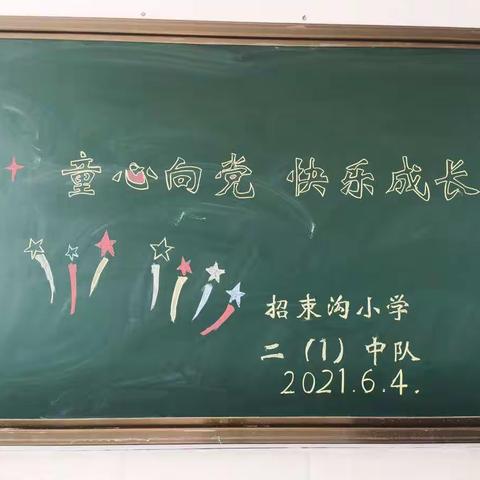 童心向党 快乐成长
招束沟小学
二（1）中队
2021.6.4.